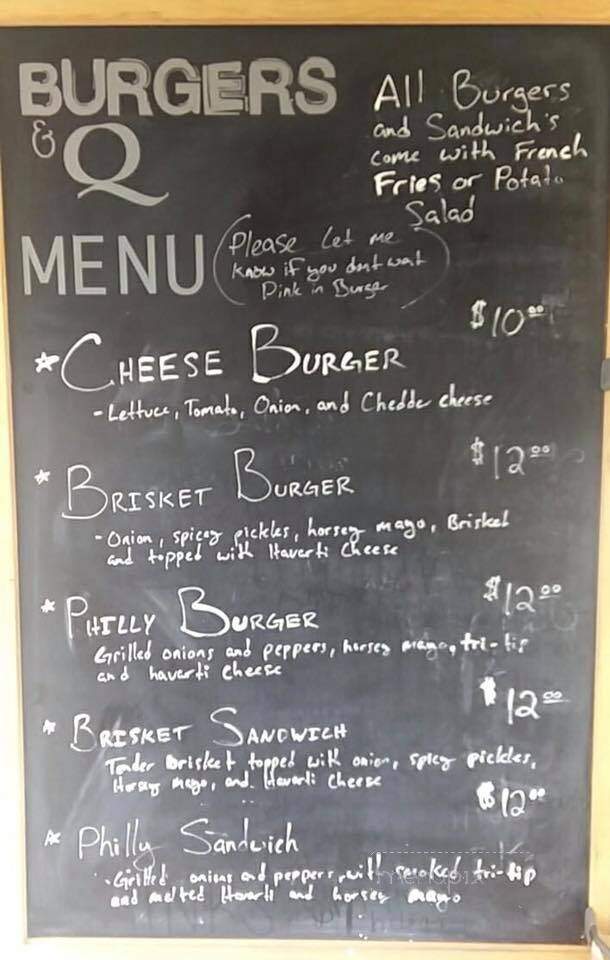 BURGERS
& Q
MENU
All Burgers
and Sandwich's
come with French
Fries or Potato
Salad
(Please let me
know if you dont wat
Pink in Burger)
$10.00
☆ CHEESE BURGER
- Lettuce, Tomato, Onion, and Chedder cheese
$12.00
* BRISKET BURGER
- Onion, spicey pickles, horsey mayo, Brisket
and topped with Havarti Cheese
$12.00
* PHILLY BURGER
Grilled onions and peppers, horsey mayo, tri-tip
and havarti cheese
$12.00
* BRISKET SANDWICH
Tender Brisket topped with onion, spicy pickles,
Horsey mayo, and Havarti Cheese
$12.00
* Philly Sandwich
- Grilled onions and peppers, with smoked tri-tip
and melted Havarti and horsey mayo
menupix